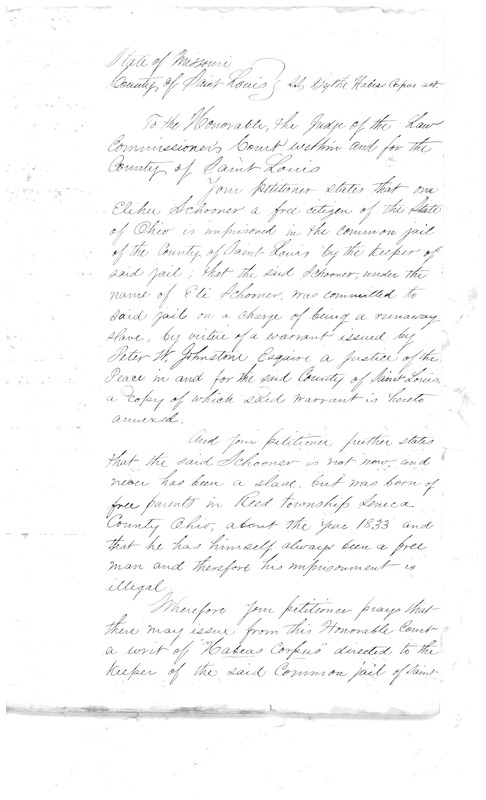 State of Missouri
County of Saint Louis } By the Habeas Corpus act
To the Honorable, the Judge of the Law
Commissioner's Court within and for the
County of Saint Louis
Your petitioner states that one
Elihu Schooner a free citizen of the State
of Ohio is imprisoned in the common jail
of the County of Saint Louis by the keeper of
said jail; that the said Schooner, under the
name of Eli Schooner, was committed to
said jail on a charge of being a runaway
slave, by virtue of a warrant issued by
Peter W. Johnstone Esquire a Justice of the
Peace in and for the said County of Saint Louis
a copy of which said warrant is hereto
annexed.
And your petitioner further states
that the said Schooner is not now, and
never has been a slave, but was born of
free parents in Reed Township Seneca
County Ohio, about the year 1833 and
that he has himself always been a free
man and therefore his imprisonment is
illegal
Wherefore your petitioner prays that
there may issue from this Honorable Court
a writ of "Habeas Corpus" directed to the
Keeper of the said Common jail of Saint